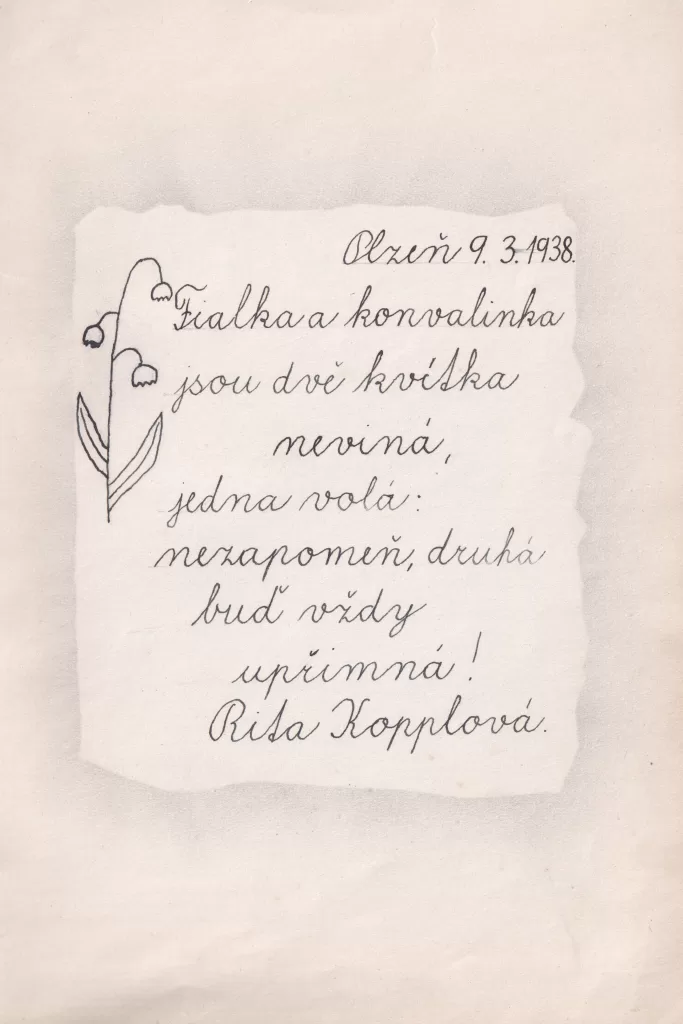 Plzeň 9. 3. 1938.
Fialka a konvalinka
jsou dvě kvítka
neviná,
jedna volá:
nezapomeň, druhá
buď vždy
upřimná!
Rita Kopplová.